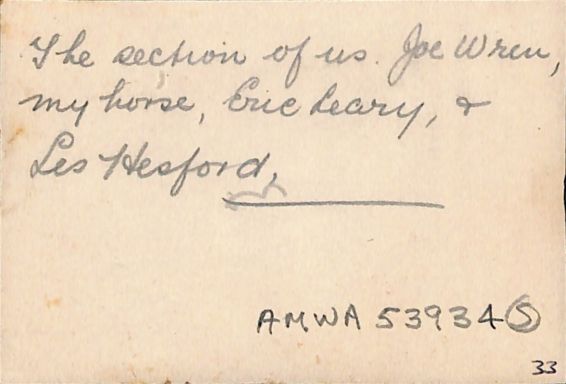 The section of us. Joe Wren,
my horse, Eric Leary, &
Les Hesford,
AMWA 53934 S
33